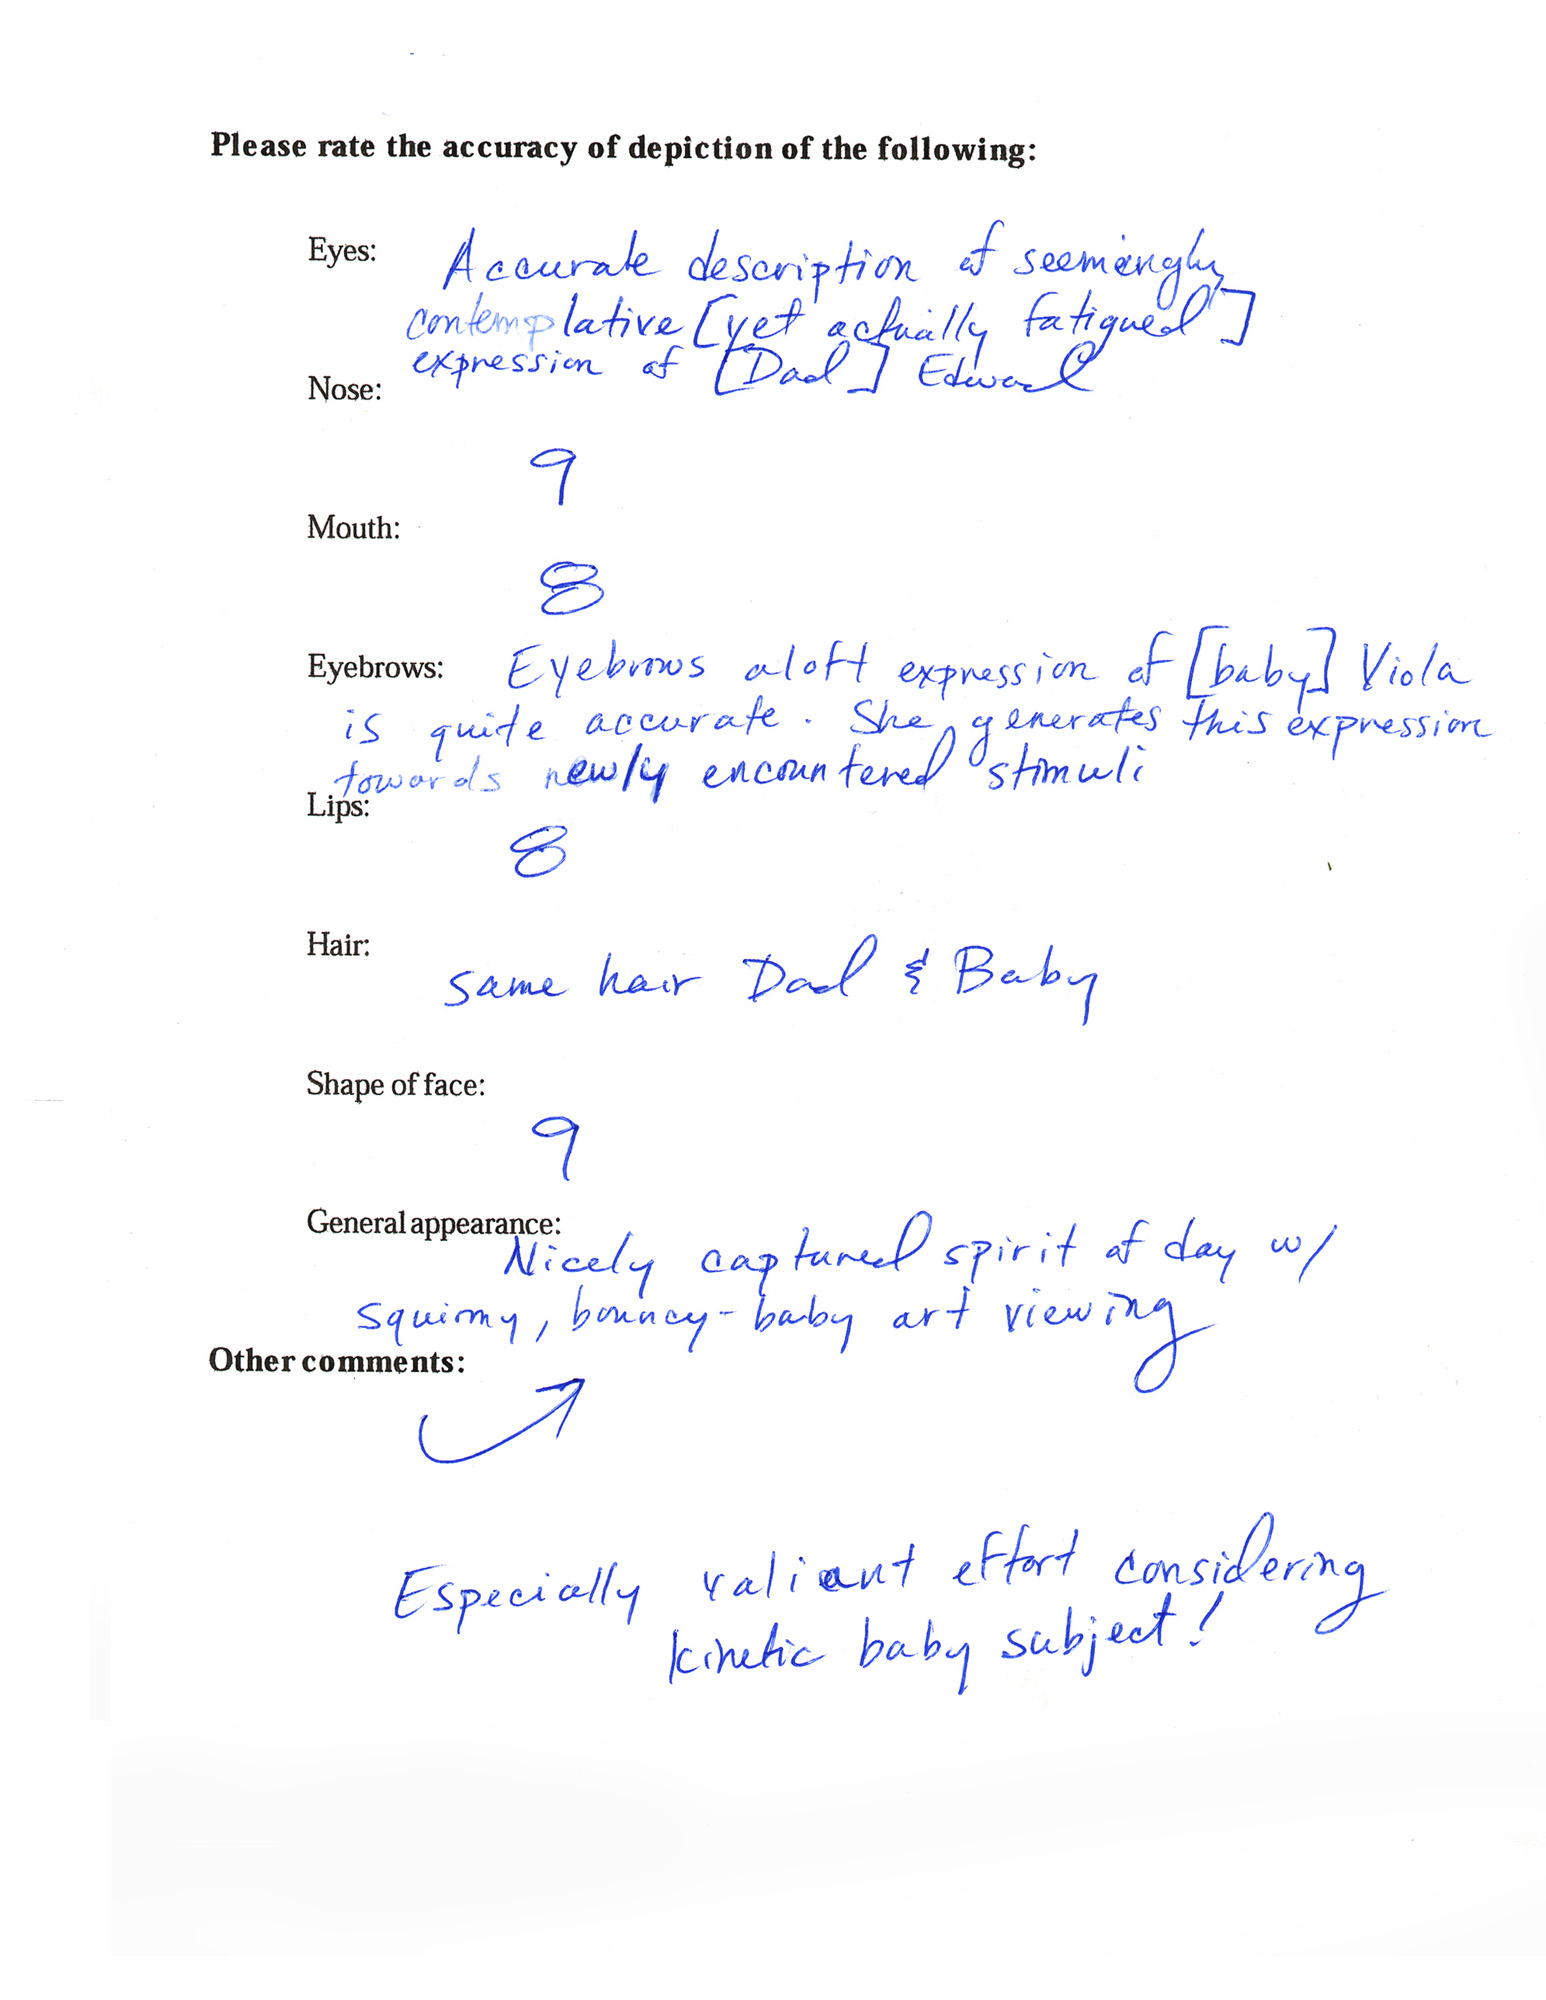 Please rate the accuracy of depiction of the following:
Eyes: Accurate description of seemingly
contemplative [yet actually fatigued]
expression of [Dad] Edward
Nose:
9
Mouth:
8
Eyebrows: Eyebrows aloft expression of [baby] Viola
is quite accurate. She generates this expression
towards newly encountered stimuli
Lips:
8
Hair:
same hair Dad & Baby
Shape of face:
9
General appearance:
Nicely captured spirit of day w/
squirmy, bouncy-baby art viewing
Other comments:
Especially valiant effort considering
kinetic baby subject!